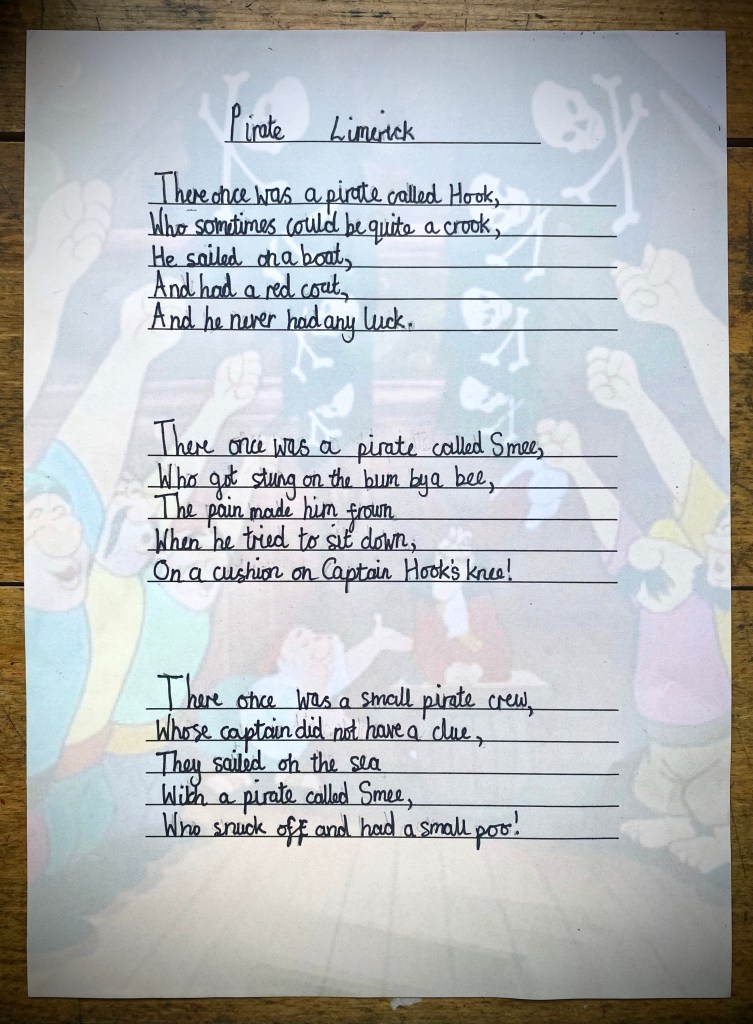 Pirate Limerick
There once was a pirate called Hook,
Who sometimes could be quite a crook,
He sailed on a boat,
And had a red coat,
And he never had any luck.
There once was a pirate called Smee,
Who got stung on the bum by a bee,
The pain made him frown
When he tried to sit down,
On a cushion on Captain Hook's knee!
There once was a small pirate crew,
Whose captain did not have a clue,
They sailed on the sea
With a pirate called Smee,
Who snuck off and had a small poo!